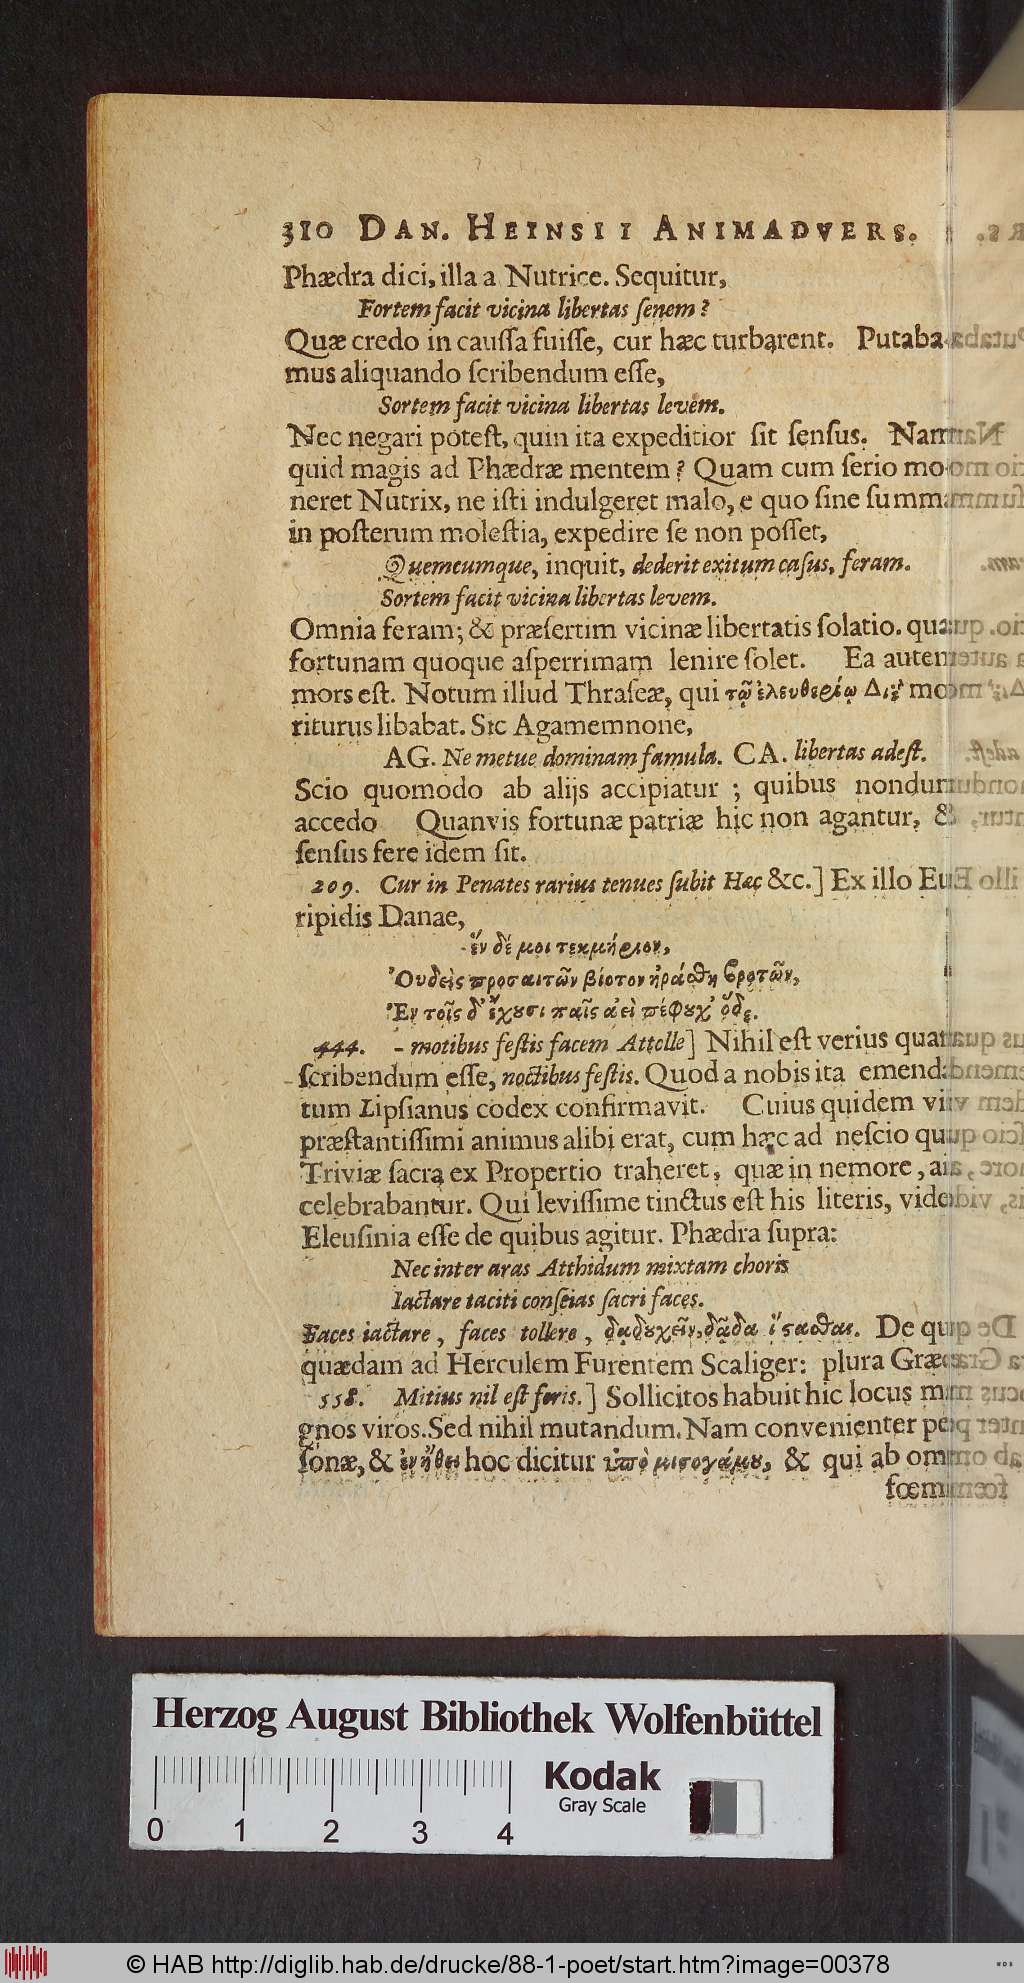 310 DAN. HEINSII ANIMADVERS.
Phædra dici, illa a Nutrice. Sequitur,
Fortem facit vicina libertas ſenem?
Quæ credo in cauſſa fuiſſe, cur hæc turbarent. Putaba-
mus aliquando ſcribendum eſſe,
Sortem facit vicina libertas levem.
Nec negari poteſt, quin ita expeditior ſit ſenſus. Nam
quid magis ad Phædræ mentem? Quam cum ſerio mo-
neret Nutrix, ne iſti indulgeret malo, e quo ſine ſumma
in poſterum moleſtia, expedire ſe non poſſet,
Quemcumque, inquit, dederit exitum caſus, feram.
Sortem facit vicina libertas levem.
Omnia feram; & præſertim vicinæ libertatis ſolatio. quæ
fortunam quoque aſperrimam lenire ſolet. Ea autem
mors eſt. Notum illud Thraſeæ, qui τῷ ἐλευθερίῳ Διῒ mo-
riturus libabat. Sic Agamemnone,
AG. Ne metue dominam famula. CA. libertas adeſt.
Scio quomodo ab alijs accipiatur ; quibus nondum
accedo Quanvis fortunæ patriæ hic non agantur, &
ſenſus fere idem ſit.
209. Cur in Penates rarius tenues ſubit Hæc &c.] Ex illo Eu-
ripidis Danae,
- ἓν δέ μοι τεκμήριον,
Ὀυδεὶς προσαιτῶν βίοτον ἠράσθη βροτῶν,
Ἐν τοῖς δ' ἔχουσι παῖς ἀεὶ πέφυχ' ὅδε.
444. - motibus feſtis facem Attolle] Nihil eſt verius quam
ſcribendum eſſe, noctibus feſtis. Quod a nobis ita emenda-
tum Lipſianus codex confirmavit. Cuius quidem viri
præſtantiſſimi animus alibi erat, cum hæc ad neſcio quæ
Triviæ ſacra ex Propertio traheret, quæ in nemore, ait,
celebrabantur. Qui leviſſime tinctus eſt his literis, videbit
Eleuſinia eſſe de quibus agitur. Phædra ſupra:
Nec inter aras Atthidum mixtam choris
Iactare taciti conſcias ſacri faces.
Faces iactare, faces tollere, δᾳδουχεῖν, δᾷδα ἵστασθαι. De qui
quædam ad Herculem Furentem Scaliger: plura Græci
558. Mitius nil eſt feris.] Sollicitos habuit hic locus ma-
gnos viros. Sed nihil mutandum. Nam convenienter per-
ſonæ, & ἐν ἤθει hoc dicitur ὑπὸ μισογάμου, & qui ab omni
fœmi-
Herzog August Bibliothek Wolfenbüttel
0 1 2 3 4
Kodak
Gray Scale
© HAB http://diglib.hab.de/drucke/88-1-poet/start.htm?image=00378